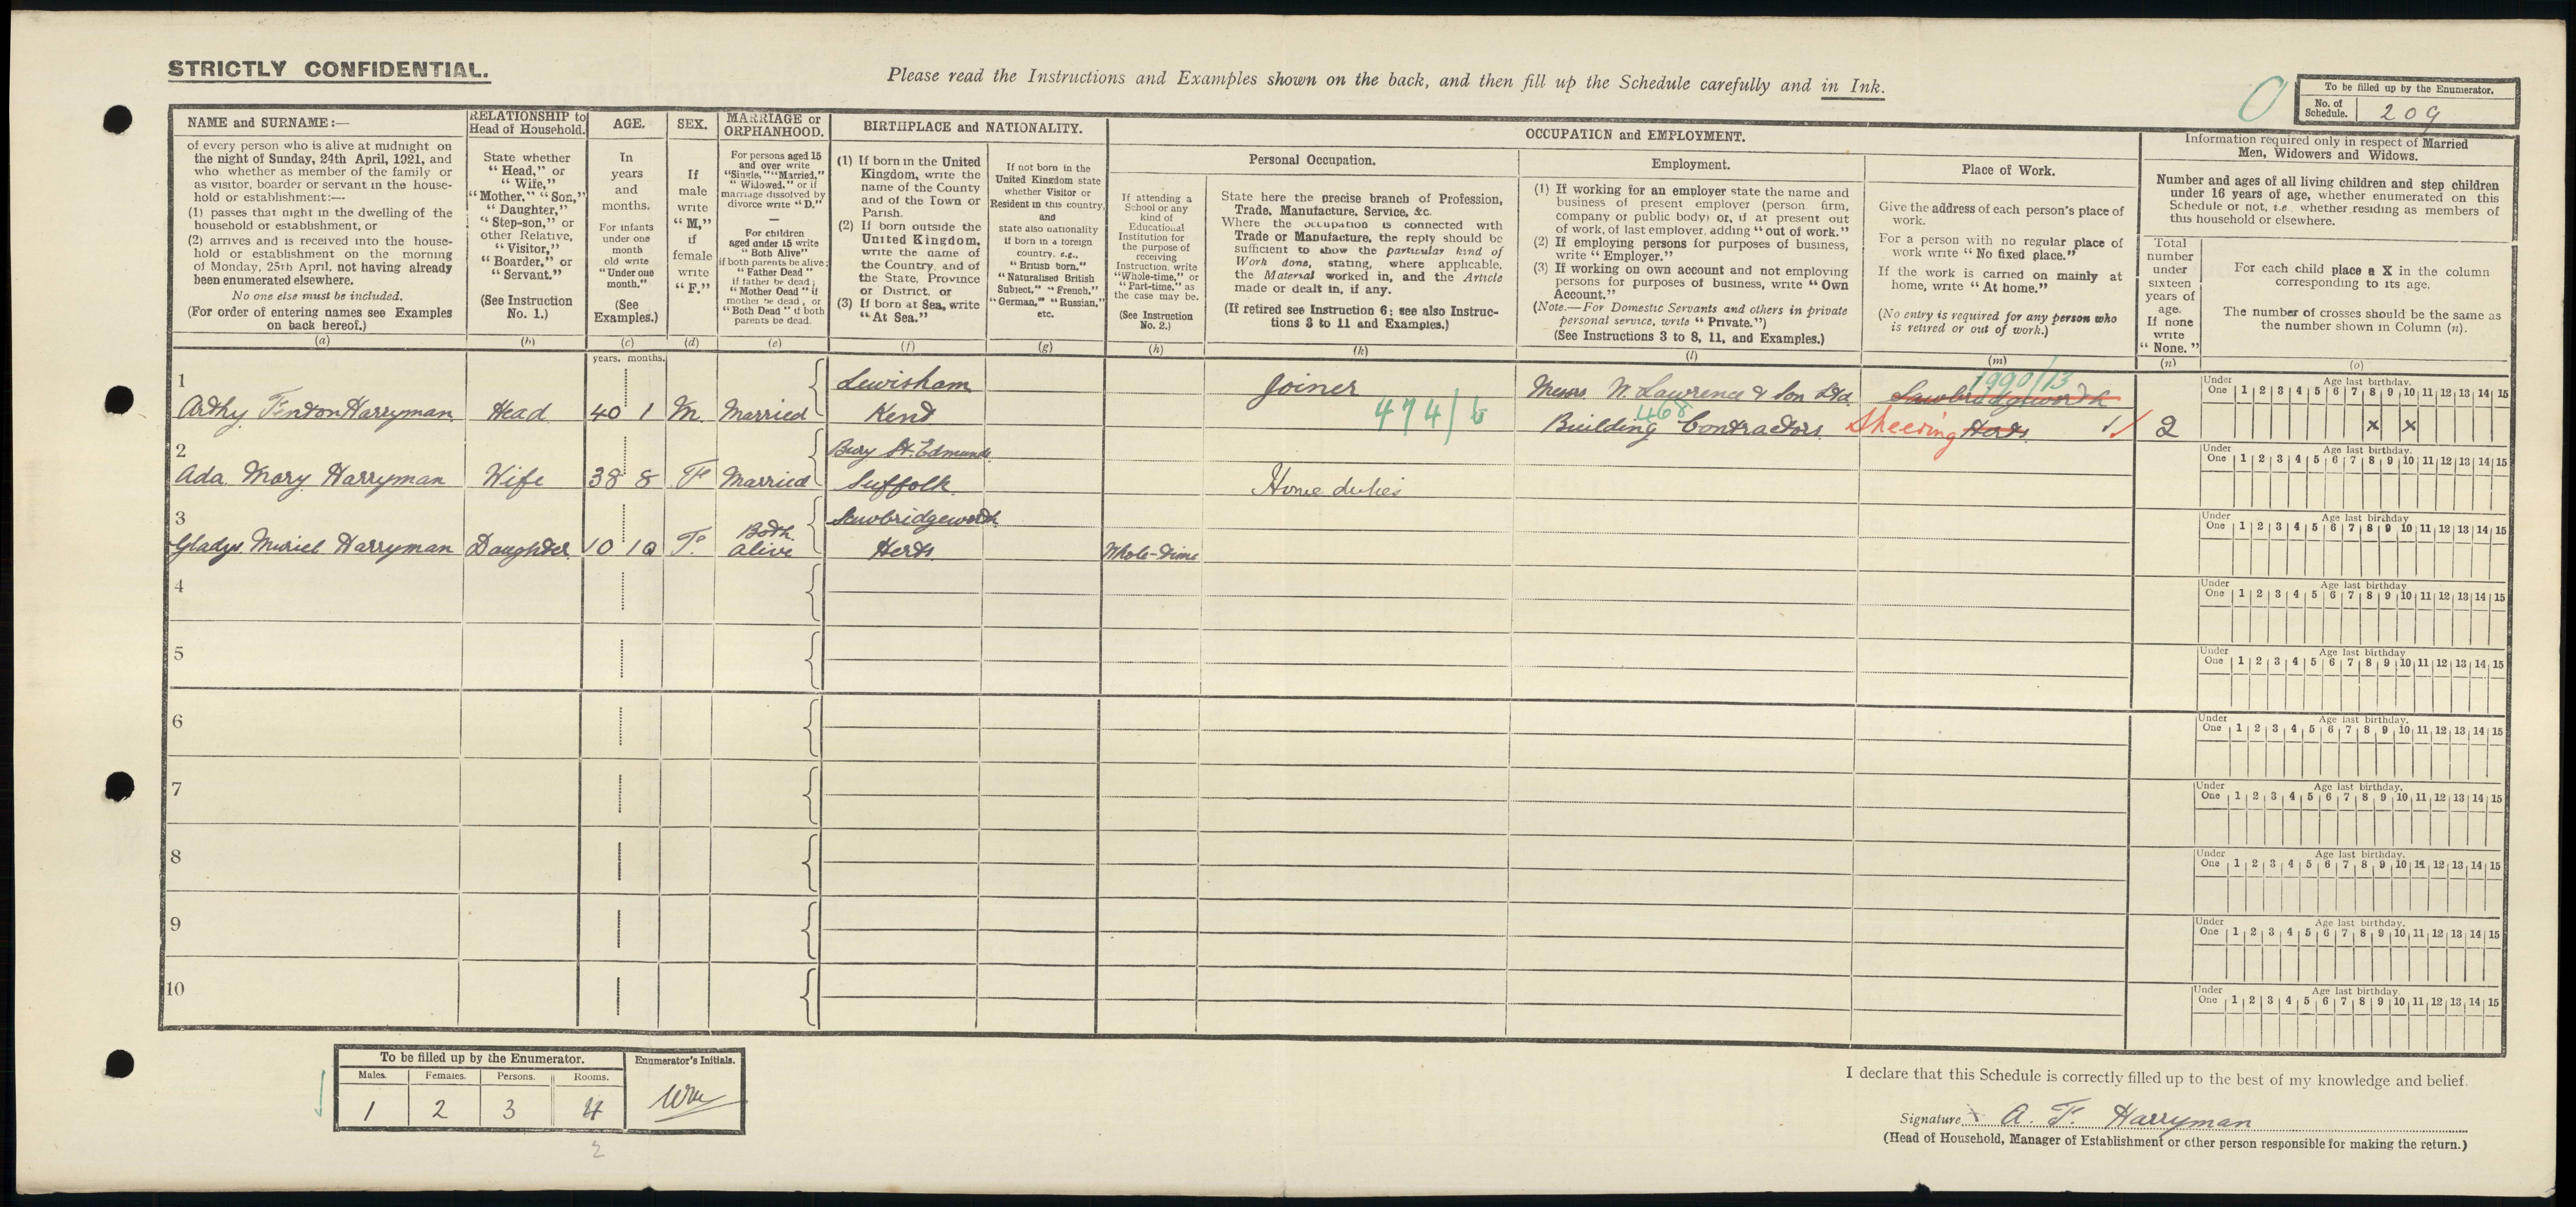 STRICTLY CONFIDENTIAL.
Please read the Instructions and Examples shown on the back, and then fill up the Schedule carefully and in Ink.
To be filled up by the Enumerator.
No. of Schedule. 209
NAME and SURNAME:—
of every person who is alive at midnight on
the night of Sunday, 24th April, 1921, and
who whether as member of the family or
as visitor, boarder or servant in the house-
hold or establishment:—
(1) passes that night in the dwelling of the
household or establishment, or
(2) arrives and is received into the house-
hold or establishment on the morning
of Monday, 25th April, not having already
been enumerated elsewhere.
No one else must be included.
(For order of entering names see Examples
on back hereof.)
(a)
RELATIONSHIP to
Head of Household.
State whether
"Head," or
"Wife,"
"Mother," "Son,"
"Daughter,"
"Step-son," or
other Relative,
"Visitor,"
"Boarder," or
"Servant."
(See Instruction
No. 1.)
(b)
AGE.
In
years
and
months.
For infants
under one
month
old write
"Under one
month."
(See
Examples.)
(c)
years. months.
SEX.
If
male
write
"M,"
if
female
write
"F."
(d)
MARRIAGE or
ORPHANHOOD.
For persons aged 15
and over write
"Single," "Married,"
"Widowed," or if
marriage dissolved by
divorce write "D."
—
For children
aged under 15 write
"Both Alive"
if both parents be alive;
"Father Dead"
if father be dead;
"Mother Dead" if
mother be dead, or
"Both Dead" if both
parents be dead.
(e)
BIRTHPLACE and NATIONALITY.
(1) If born in the United
Kingdom, write the
name of the County
and of the Town or
Parish.
(2) If born outside the
United Kingdom,
write the name of
the Country, and of
the State, Province
or District, or
(3) If born at Sea, write
"At Sea."
(f)
If not born in the
United Kingdom state
whether Visitor or
Resident in this country,
and
state also nationality
if born in a foreign
country, e.g.,
"British born,"
"Naturalised British
Subject," "French,"
"German," "Russian,"
etc.
(g)
OCCUPATION and EMPLOYMENT.
Personal Occupation.
If attending a
School or any
kind of
Educational
Institution for
the purpose of
receiving
Instruction, write
"Whole-time," or
"Part-time," as
the case may be.
(See Instruction
No. 2.)
(h)
State here the precise branch of Profession,
Trade, Manufacture, Service, &c.
Where the occupation is connected with
Trade or Manufacture, the reply should be
sufficient to show the particular kind of
Work done, stating, where applicable,
the Material worked in, and the Article
made or dealt in, if any.
(If retired see Instruction 6; see also Instruc-
tions 3 to 11 and Examples.)
(k)
Employment.
(1) If working for an employer state the name and
business of present employer (person, firm,
company or public body) or, if at present out
of work, of last employer, adding "out of work."
(2) If employing persons for purposes of business,
write "Employer."
(3) If working on own account and not employing
persons for purposes of business, write "Own
Account."
(Note.—For Domestic Servants and others in private
personal service, write "Private.")
(See Instructions 3 to 8, 11, and Examples.)
(l)
Place of Work.
Give the address of each person's place of
work.
For a person with no regular place of
work write "No fixed place."
If the work is carried on mainly at
home, write "At home."
(No entry is required for any person who
is retired or out of work.)
(m)
Information required only in respect of Married
Men, Widowers and Widows.
Number and ages of all living children and step children
under 16 years of age, whether enumerated on this
Schedule or not, i.e., whether residing as members of
this household or elsewhere.
Total
number
under
sixteen
years of
age.
If none
write
"None."
(n)
For each child place a X in the column
corresponding to its age.
The number of crosses should be the same as
the number shown in Column (n).
(o)
1
Arthy Fenton Harryman Head 40 1 M. Married Lewisham Kent
Joiner 474/
Messrs W. Lawrence & Son Ltd.
468
Building Contractors
1990/13
Sawbridgeworth
Sheering Herts
2
Under One 1 2 3 4 5 6 7 8 9 10 11 12 13 14 15
Age last birthday.
x x
2
Ada Mary Harryman Wife 38 8 F Married Bury St. Edmunds Suffolk
Home duties
Under One 1 2 3 4 5 6 7 8 9 10 11 12 13 14 15
Age last birthday.
3
Gladys Muriel Harryman Daughter 10 10 F. Both alive Sawbridgeworth Herts
Whole-time
Under One 1 2 3 4 5 6 7 8 9 10 11 12 13 14 15
Age last birthday
4
Under One 1 2 3 4 5 6 7 8 9 10 11 12 13 14 15
Age last birthday
5
Under One 1 2 3 4 5 6 7 8 9 10 11 12 13 14 15
Age last birthday
6
Under One 1 2 3 4 5 6 7 8 9 10 11 12 13 14 15
Age last birthday.
7
Under One 1 2 3 4 5 6 7 8 9 10 11 12 13 14 15
Age last birthday.
8
Under One 1 2 3 4 5 6 7 8 9 10 11 12 13 14 15
Age last birthday.
9
Under One 1 2 3 4 5 6 7 8 9 10 11 12 13 14 15
Age last birthday.
10
Under One 1 2 3 4 5 6 7 8 9 10 11 12 13 14 15
Age last birthday.
To be filled up by the Enumerator.
Males. Females. Persons. Rooms.
1 2 3 4
2
Enumerator's Initials.
I declare that this Schedule is correctly filled up to the best of my knowledge and belief.
Signature x A. F. Harryman
(Head of Household, Manager of Establishment or other person responsible for making the return.)